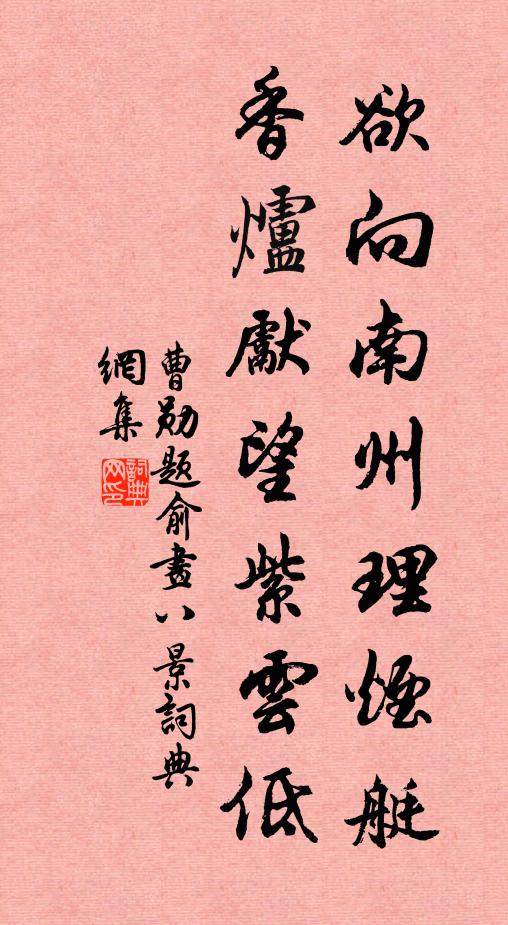 欲向南州理煙艇
香爐獻望紫雲低
曹勛題俞畫八景詞典
網集
詞典網印